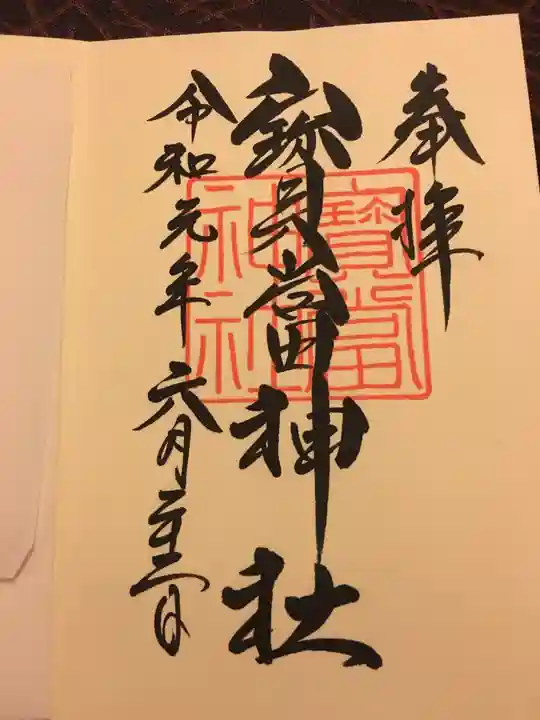 奉拝
寳當神社
令和元年六月二十二日
寳當
神社